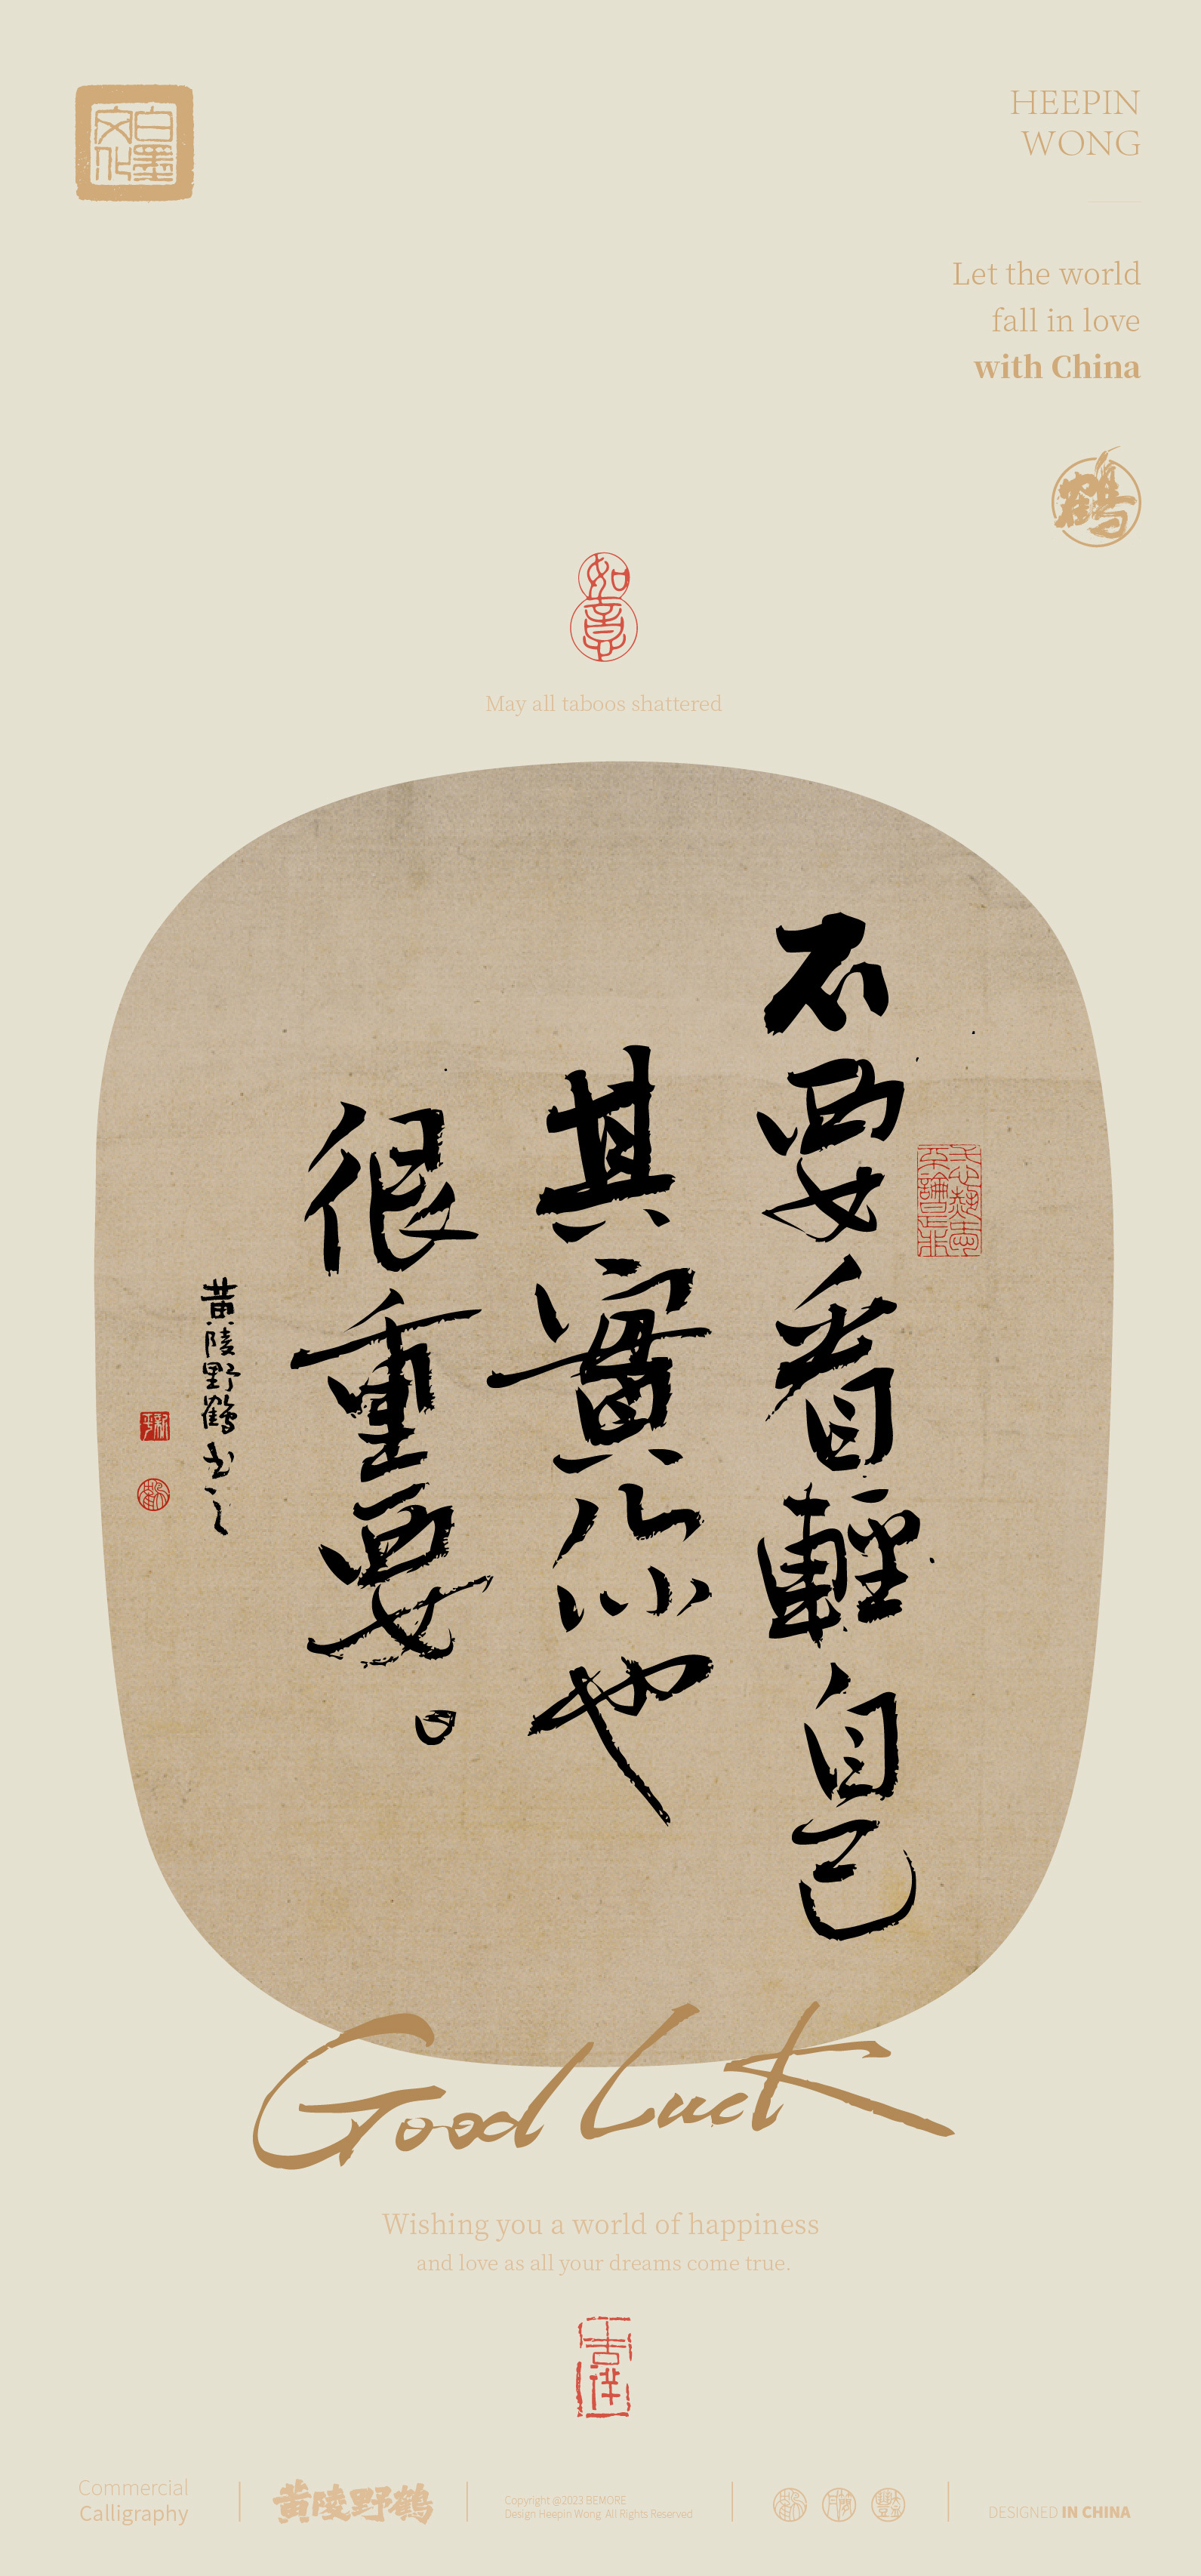 白墨
文化
HEEPIN
WONG
Let the world
fall in love
with China
鶴
如意
May all taboos shattered
不要看輕自己
其實你也
很重要。
黄陵野鶴书之
Good Luck
Wishing you a world of happiness
and love as all your dreams come true.
吉祥
Commercial
Calligraphy
黄陵野鶴
Copyright @2023 BEMORE
Design Heepin Wong All Rights Reserved
DESIGNED IN CHINA